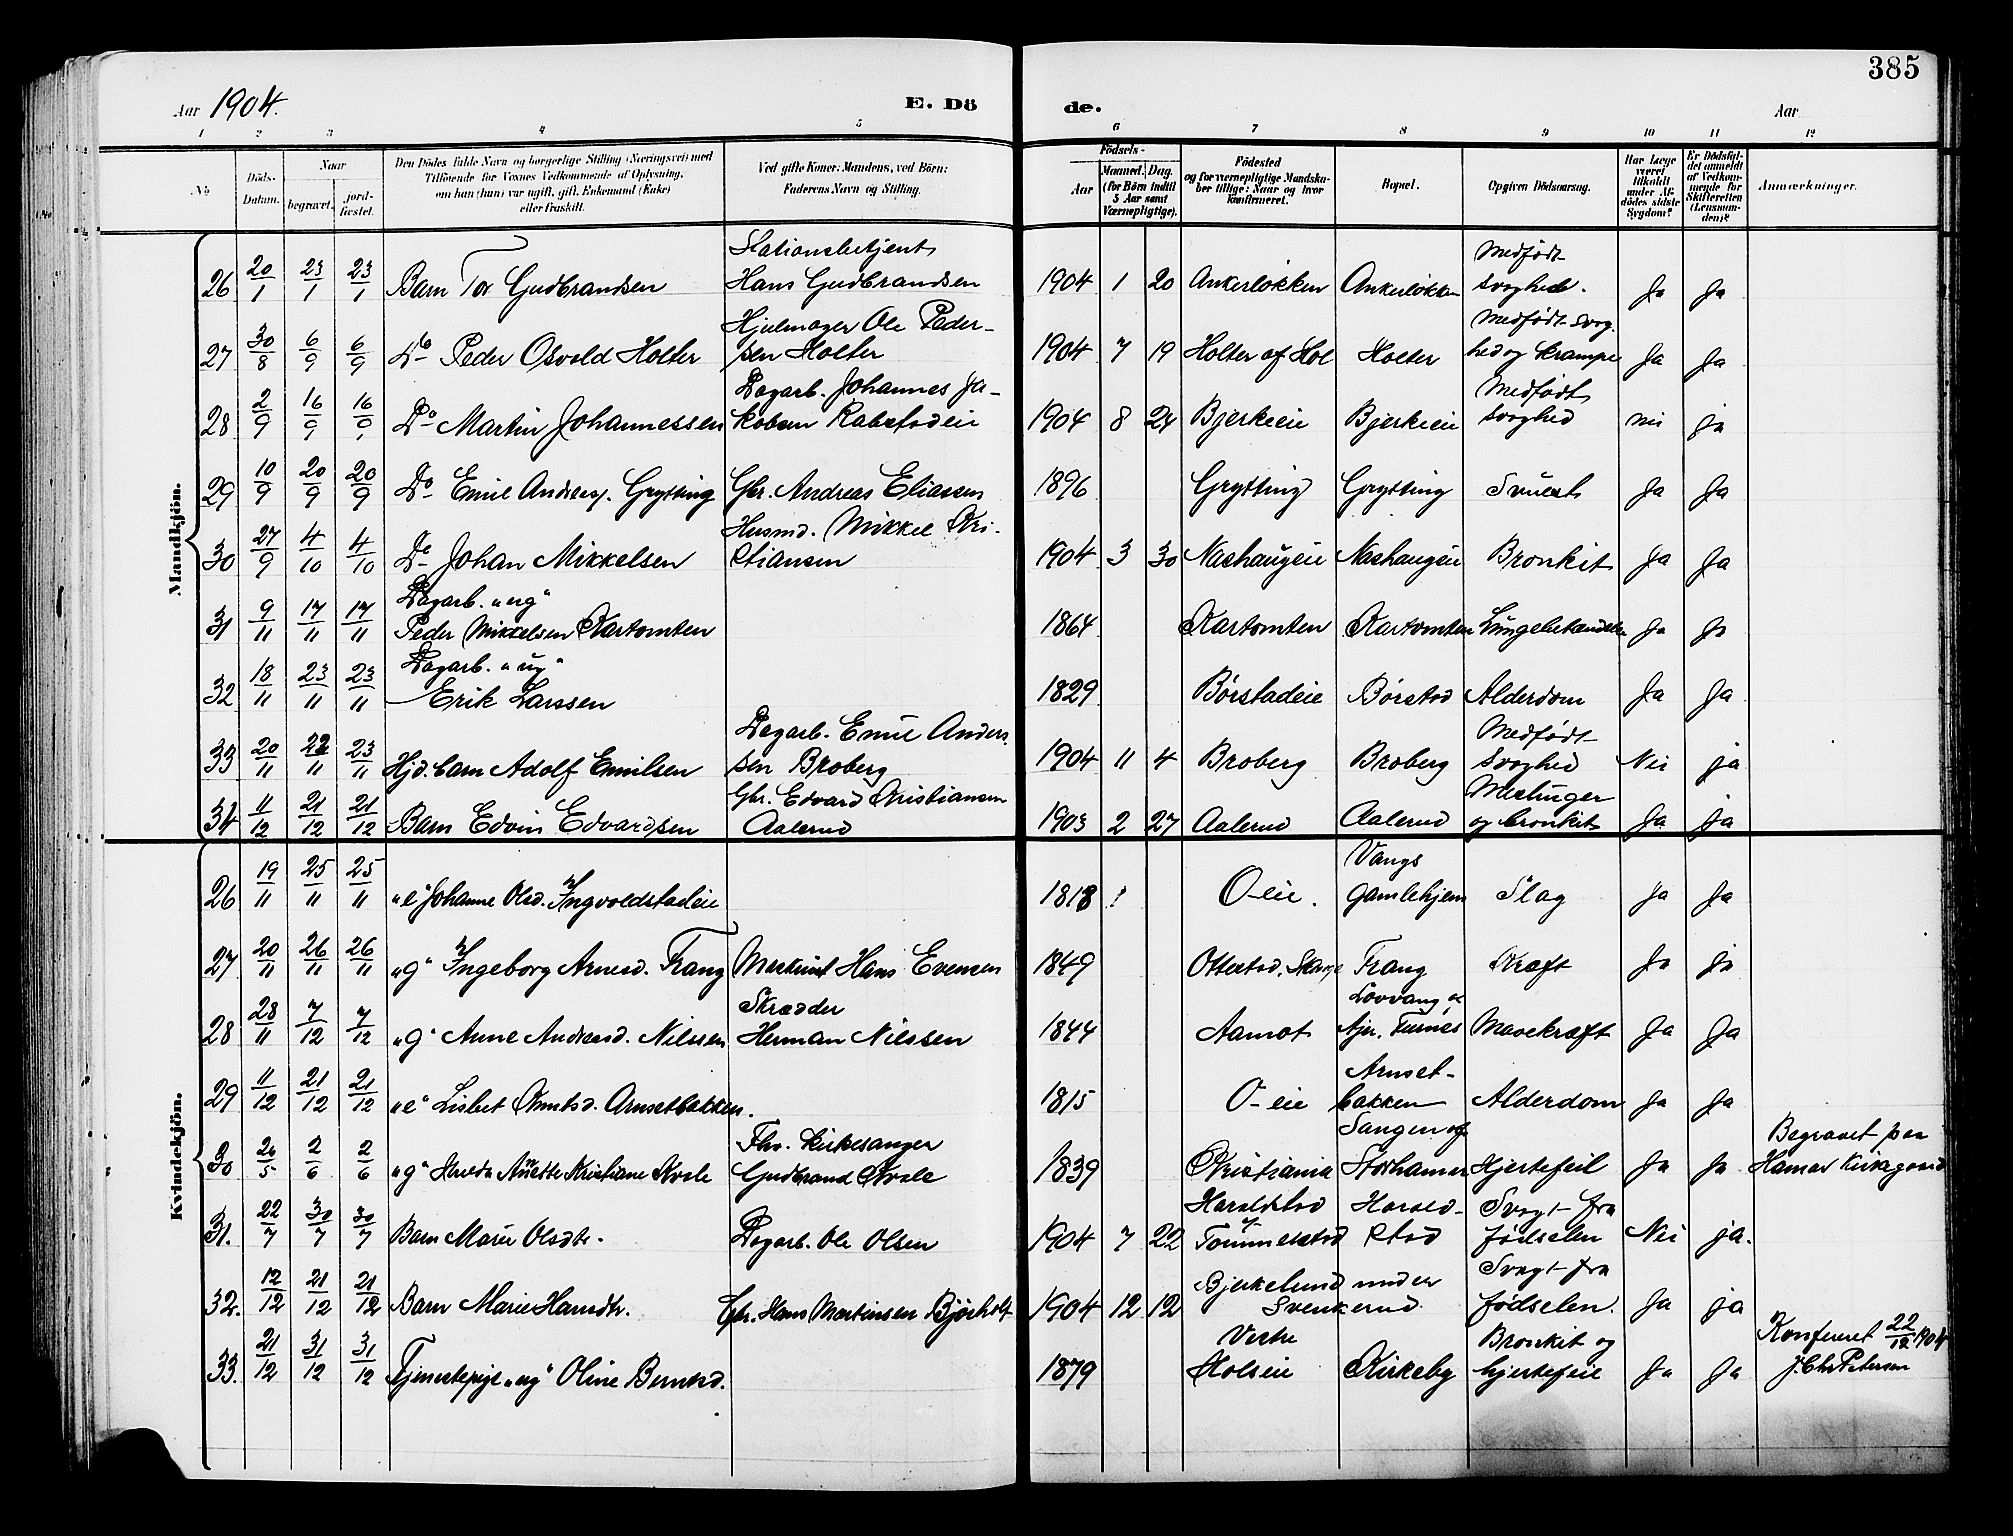 385
Aar 1904.
E. Dö
de.
Aar
1 2 3 4 5 6 7 8 9 10 11 12
No
Döds-
Datum.
Naar
begravet.
jord-
fæstet.
Den Dödes fulde Navn og borgerlige Stilling (Næringsvei) med
Tilföiende for Voxnes Vedkommende af Oplysning,
om han (hun) var ugift, gift, Enkemand (Enke)
eller fraskilt.
Ved gifte Koner: Mandens, ved Börn:
Faderens Navn og Stilling.
Födsels-
Aar
Maaned. Dag.
(for Börn indtil
5 Aar samt
Værnepligtige).
Födested
og for værnepligtige Mandska-
ber tillige: Naar og hvor
konfirmeret.
Bopæl.
Opgiven Dödsaarsag.
Har Læge
været
tilkaldt
under Af-
dödes sidste
Sygdom?
Er Dödsfal-
det anmeldt
af Vedkom-
mende for
Skifteretten
(Lensman-
den)?
Anmærkninger.
Mandkjön.
26 20/1 23/1 23/1 Barn Tor Gudbrandsen Stationsbetjent Hans Gudbrandsen 1904 1 20 Ankerløkken Ankerløkken Medfødt svaghed. Ja Ja
27 30/8 6/9 6/9 Do Peder Osvald Holter Hjulmager Ole Peder-
sen Holter 1904 7 19 Holter af Hol Holter Medfødt svag-
hed og krampe Ja Ja
28 2/9 16/9 16/9 Do Martin Johannessen Dagarb. Johannes Ja-
kobsen Rabstadeie 1904 8 24 Bjerkeeie Bjerkeeie Medfødt svaghed nei ja
29 10/9 20/9 20/9 Do Emil Andreas. Grytting Gbr. Andreas Eliassen 1896 Grytting Grytting Ja Ja
30 27/9 4/10 4/10 Do Johan Mikkelsen Husmd. Mikkel Kri-
stiansen 1904 3 30 Nashaugeie Nashaugeie Bronkit Ja Ja
31 9/11 17/11 17/11 Dagarb. "ug"
Peder Mikkelsen Kartomten 1864 Kartomten Kartomten Lungebetændelse Ja Ja
32 18/11 23/11 23/11 Dagarb. "ug"
Erik Larssen 1829 Børstadeie Børstad Alderdom Ja Ja
33 20/11 22/11 23/11 Hjd. barn Adolf Emilsen Dagarb. Emil Anders-
sen Broberg 1904 11 4 Broberg Broberg Medfødt svaghed Nei ja
34 11/12 21/12 21/12 Barn Edvin Edvardsen Gbr. Edvard Kristiansen
Aalerud 1903 2 27 Aalerud Aalerud Meslinger
og bronkit Ja ja
Kvindekjön.
26 19/11 25/11 25/11 "e" Johanne Olsd. Ingvoldstadeie 1818 ! O-eie. Vangs
gamlehjem Slag Ja Ja
27 20/11 26/11 26/11 "g" Ingeborg Arnesd. Frang Maskinist Hans Evensen 1849 Ottestad, Stange Frang Kræft Ja ja
28 28/11 7/12 7/12 "g" Anne Andersd. Nilssen Skrædder
Herman Nilssen 1844 Aamot Lovvang Mavekræft Ja Ja
29 11/12 21/12 21/12 "e" Lisbet Knutsd. Arnsetbakken. 1815 O-eie Arnset-
bakken Alderdom Ja Ja
30 26/5 2/6 2/6 "g" Hulda Anette Kristiane Kvale Fhv. kirkesanger
Gudbrand Kvale 1839 Kristiania Sangen af
Storhamar Hjertefeil Ja Ja Begravet paa
Hamar kirkegaard
31. 22/7 30/7 30/7 Barn Marie Olsdtr. Dagarb. Ole Olsen 1904 7 22 Haraldstad
Tommelstad Harald-
stad Svagt fra
fødselen Nei ja.
32. 12/12 21/12 21/12 Barn Marie Hansdtr. Gbr. Hans Martinsen Bjørholt 1904 12 12 Bjerkelund under
Svenkerud Svagt fra
fødselen. Ja ja
33. 21/12 31/12 31/12 Tjenestepige "ug" Oline Berntsd. 1879 Vestre
Holseie Kirkeby Bronkit og
hjertefeil Ja Ja Konfereret 22/12 1904
J. Chr Petersen